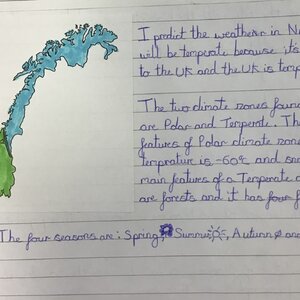 I predict the weather in N
will be temperate because its
to the UK and the UK is temp
The two climate zones foun
are Polar and Temperate. Th
features of Polar climate zone
temprature is -60°c and sno
main features of a Temperate c
are forests and it has four
The four seasons are: Spring, Summer, Autumn and